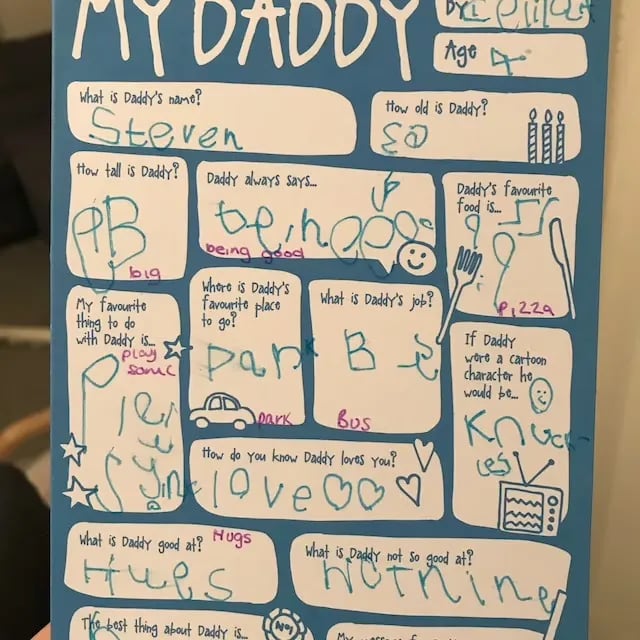 MY DADDY
By
Age 4
What is Daddy's name?
Steven
How old is Daddy?
How tall is Daddy?
big
Daddy always says...
being good
Daddy's favourite
food is...
pizza
My favourite
thing to do
with Daddy is...
play
sonic
Where is Daddy's
favourite place
to go?
park
park
What is Daddy's job?
B
Bus
If Daddy
were a cartoon
character he
would be...
Knuck
les
How do you know Daddy loves you?
love
What is Daddy good at?
Hugs
Hugs
What is Daddy not so good at?
Nothing
The best thing about Daddy is...
No1